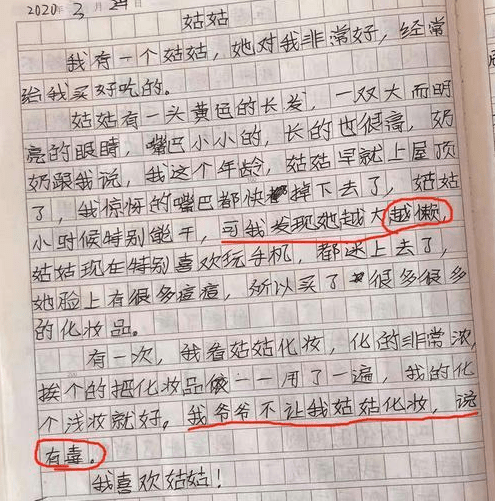 2020年3月29日
姑姑
我有一个姑姑，她对我非常好，经常
给我买好吃的。
姑姑有一头黄色的长发，一双大而明
亮的眼睛，嘴巴小小的，长的也很高，奶
奶跟我说，我这个年龄，姑姑早就上屋顶
了，我惊讶的嘴巴都快掉下去了，姑姑
小时候特别能干，可我发现她越大越懒，
姑姑现在特别喜欢玩手机，都迷上去了，
她脸上有很多痘痘，所以买了很多很多
的化妆品。
有一次，我看姑姑化妆，化的非常浓，
挨个的把化妆品依一一用了一遍，我的化
个浅妆就好。我爷爷不让我姑姑化妆，说
有毒。
我喜欢姑姑！